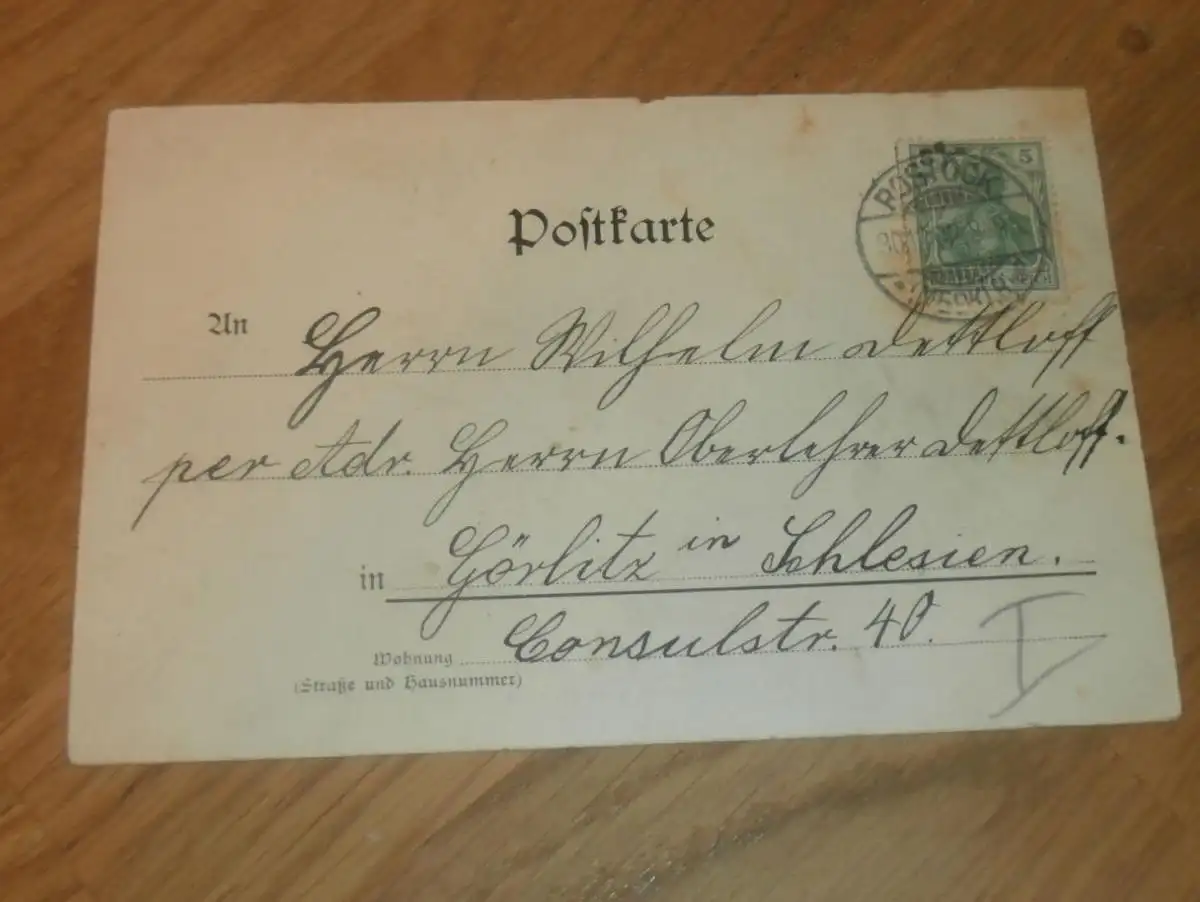 Postkarte
5
ROSTOCK
An Herrn Wilhelm Dettloff
per Adr. Herrn Oberlehrer Dettloff.
in Görlitz in Schlesien.
Wohnung Consulstr. 40.
(Straße und Hausnummer)
I